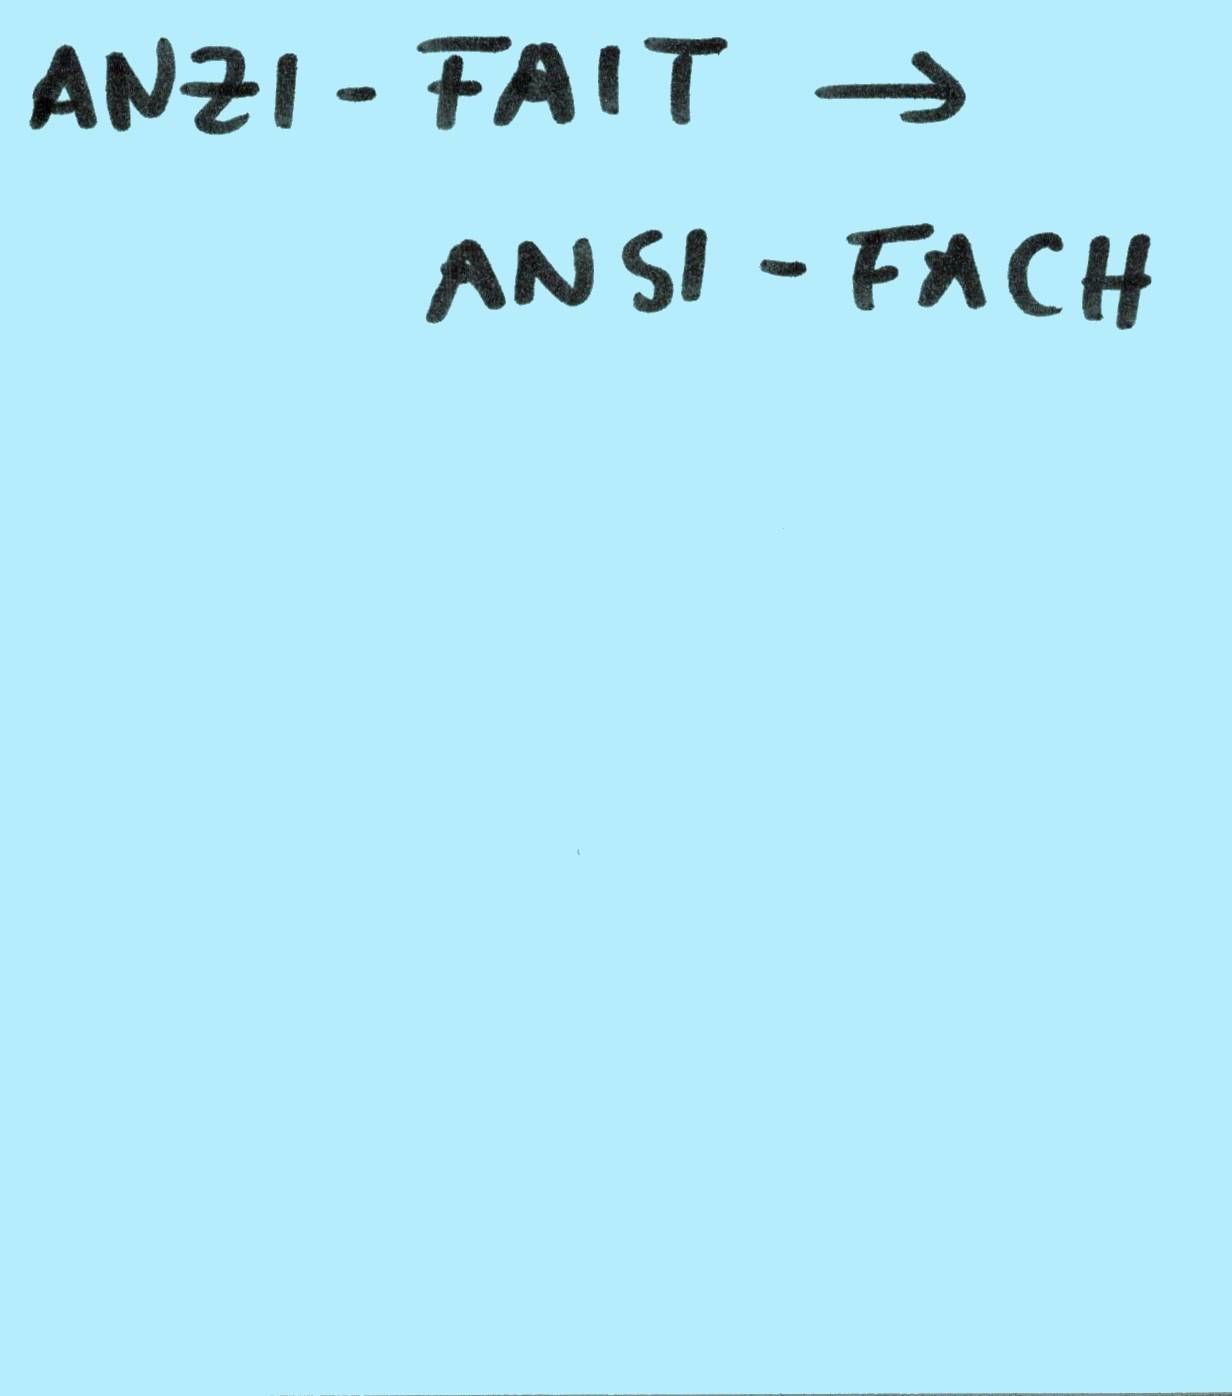 ANZI - FAIT →
ANSI - FACH